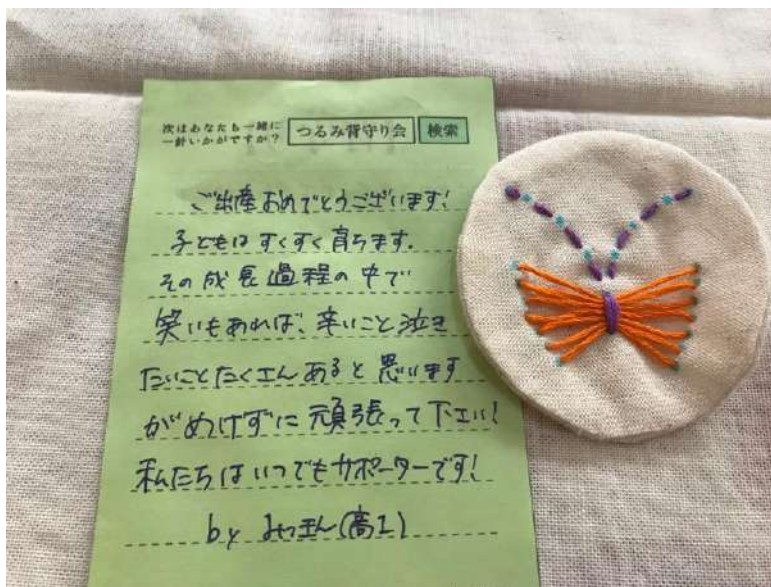 次はあなたも一緒に
一針いかがですか？
つるみ背守り会 検索
ご出産おめでとうございます!
子どもはすくすく育ちます.
その成長過程の中で
笑いもあれば、辛いこと泣き
たいことたくさんあると思います
がめげずに頑張って下さい!
私たちはいつでもサポーターです!
by みっきん(高1)